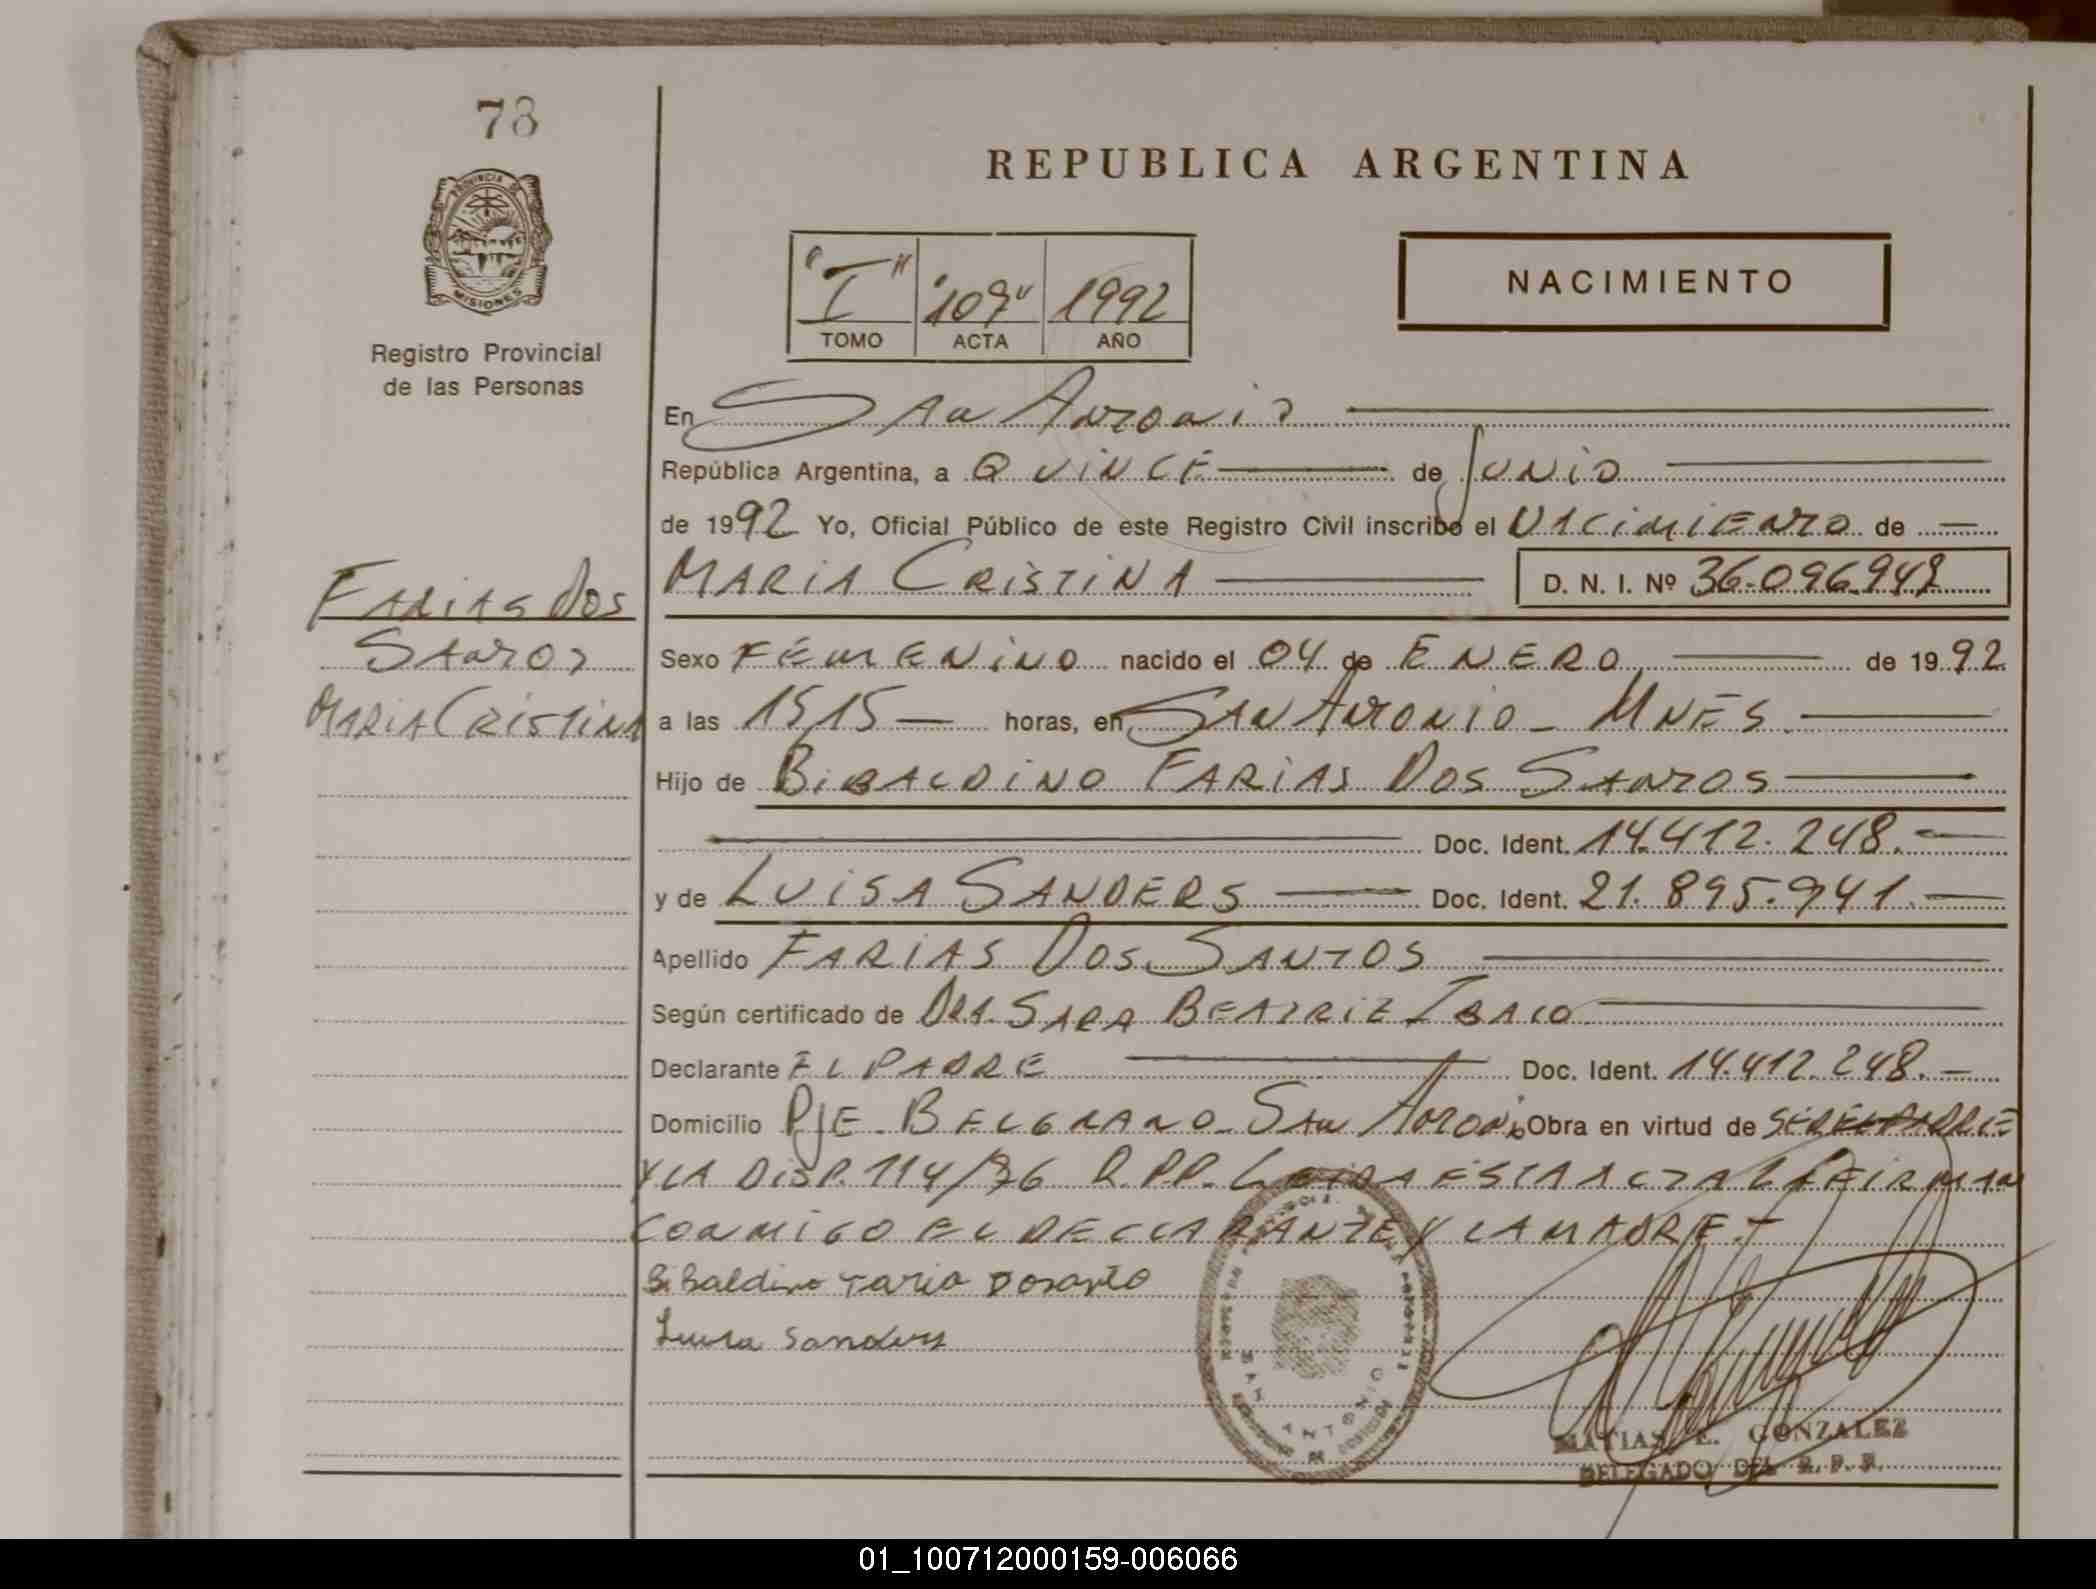 78
PROVINCIA DE
MISIONES
Registro Provincial
de las Personas
REPUBLICA ARGENTINA
"I" "107" 1992
TOMO ACTA AÑO
NACIMIENTO
En San Antonio
República Argentina, a QUINCE de JUNIO
de 1992 Yo, Oficial Público de este Registro Civil inscribo el NACIMIENTO de
MARIA CRISTINA D. N. I. Nº 36.096.942
FARIAS DOS
SANTOS
MARIA CRISTINA
Sexo FEMENINO nacido el 04 de ENERO de 1992
a las 15,15 horas, en SAN ANTONIO - MNES
Hijo de BIBALDINO FARIAS DOS SANTOS
Doc. Ident. 14.412.248.-
y de LUISA SANDERS Doc. Ident. 21.895.941.-
Apellido FARIAS DOS SANTOS
Según certificado de DRA. SARA BEATRIZ
Declarante EL PADRE Doc. Ident. 14.412.248.-
Domicilio PJE. BELGRANO - San ANTONIO Obra en virtud de SER EL PADRE
Y LA DISP. 114/76 R.P.P. LEIDA ESTA ACTA LA FIRMAN
CONMIGO EL DECLARANTE Y LA MADRE.-
Bibaldino Faria Dosanto
Luisa Sanders
SAN ANTONIO
MATIAS E. GONZALEZ
DELEGADO DEL R. P. P.
01_100712000159-006066